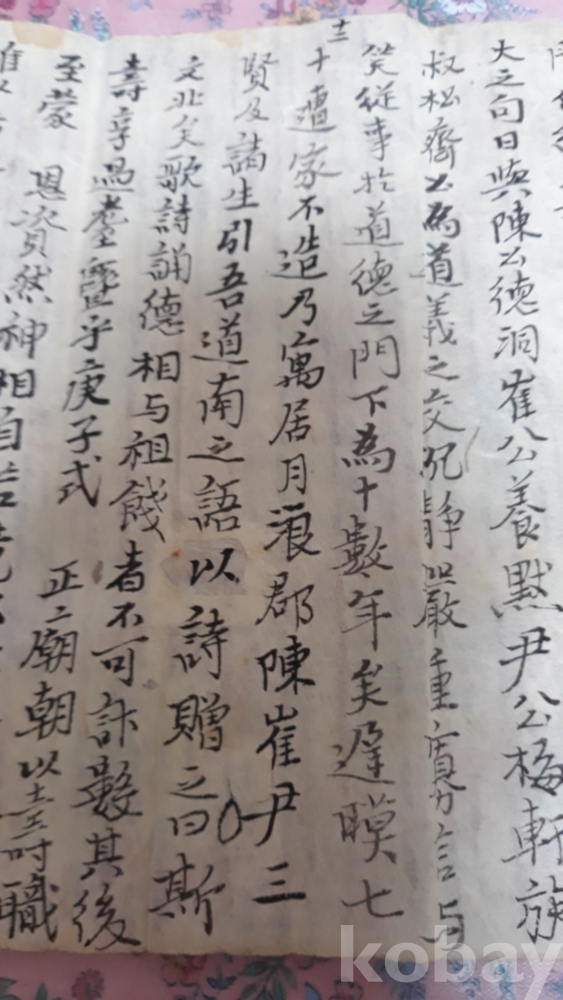 大之句日與陳公德洞崔公養默尹公梅軒族
叔松齋公為道義之交 靜嚴重寡言与
従事於道德之門下為十數年矣 七
十二
十遭家不造乃寓居月浪郡陳崔尹三
賢及諸生引吾道南之語以詩贈之曰斯
文北矣歌詩誦德相与祖餞者不可計數其後
壽享過耋 乎庚子式 正廟朝以壽職
至蒙 恩資然神相自
kobay